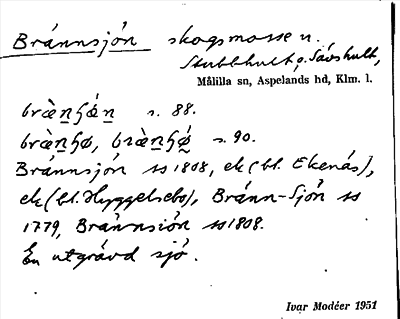 Brännsjön skogsmosse n.
Stubbhult o. Sävshult,
Målilla sn, Aspelands hd, Klm. l.
s. 88.
s. 90.
Brännsjön ss 1808, ek (bl. Ekenäs),
ek (bl. Hyggelsebo), Bränn-Sjön ss
1779, Brännsiön ss 1808.
En utgrävd sjö.
Ivar Modéer 1951